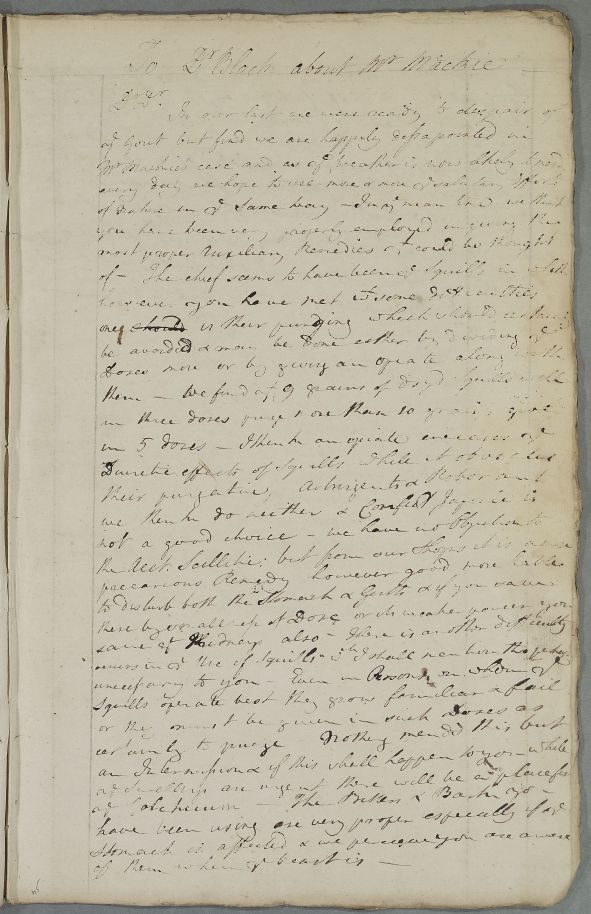 To Dr Bloch about Mr Mackie
Dr Sr
In our last we were ready to despair of
ye Gout but find we are happily dissapointed in
Mr Mackie's case and as ye weather is now likely
every day we hope to see more & more ye salutary Effects
of Nature in ye same way - In ye mean time we think
you have been very properly employed in giving the
most proper Auxiliary Remedies yt could be thought
of - The chief seems to have been ye Squills in which
however you have met wt some difficulties
one should is their purging which should certainly
be avoided & may be done either by dividing ye
Doses more or by giving an opiate along with
them - We find yt 9 grains of dryd Squills
in three doses purge more than 10 grains given
in 5 doses - I think an opiate encreases ye
Diuretic effects of Squills while it obviates
their purgative, Astringents & Roborants
we think do neither & Confect Japonic is
not a good choice - we have no Objection to
the Acet. Scillitic; but from our Shops it is
precarious Remedy however good more liable
to disturb both the Stomach & Guts & if you save
these by smallness of Dose or its weaker power you
save ye Kidneys also - There is another difficulty
occurs in ye Use of Squills wch I shall mention tho perhaps
unnecessary to you - Even in Persons on whom ye
Squills operate best they grow familiar & fail
or they must be given in such Doses as
certainly to purge Nothing mends this but
an Intermission & if this shall happen to you while
ye Swellings are urgent there will be a place for
ye Colchicum - The Bitters & Bark you
have been using are very proper especially if ye
Stomach is affected & we perceive you are aware
of them when ye breast is -